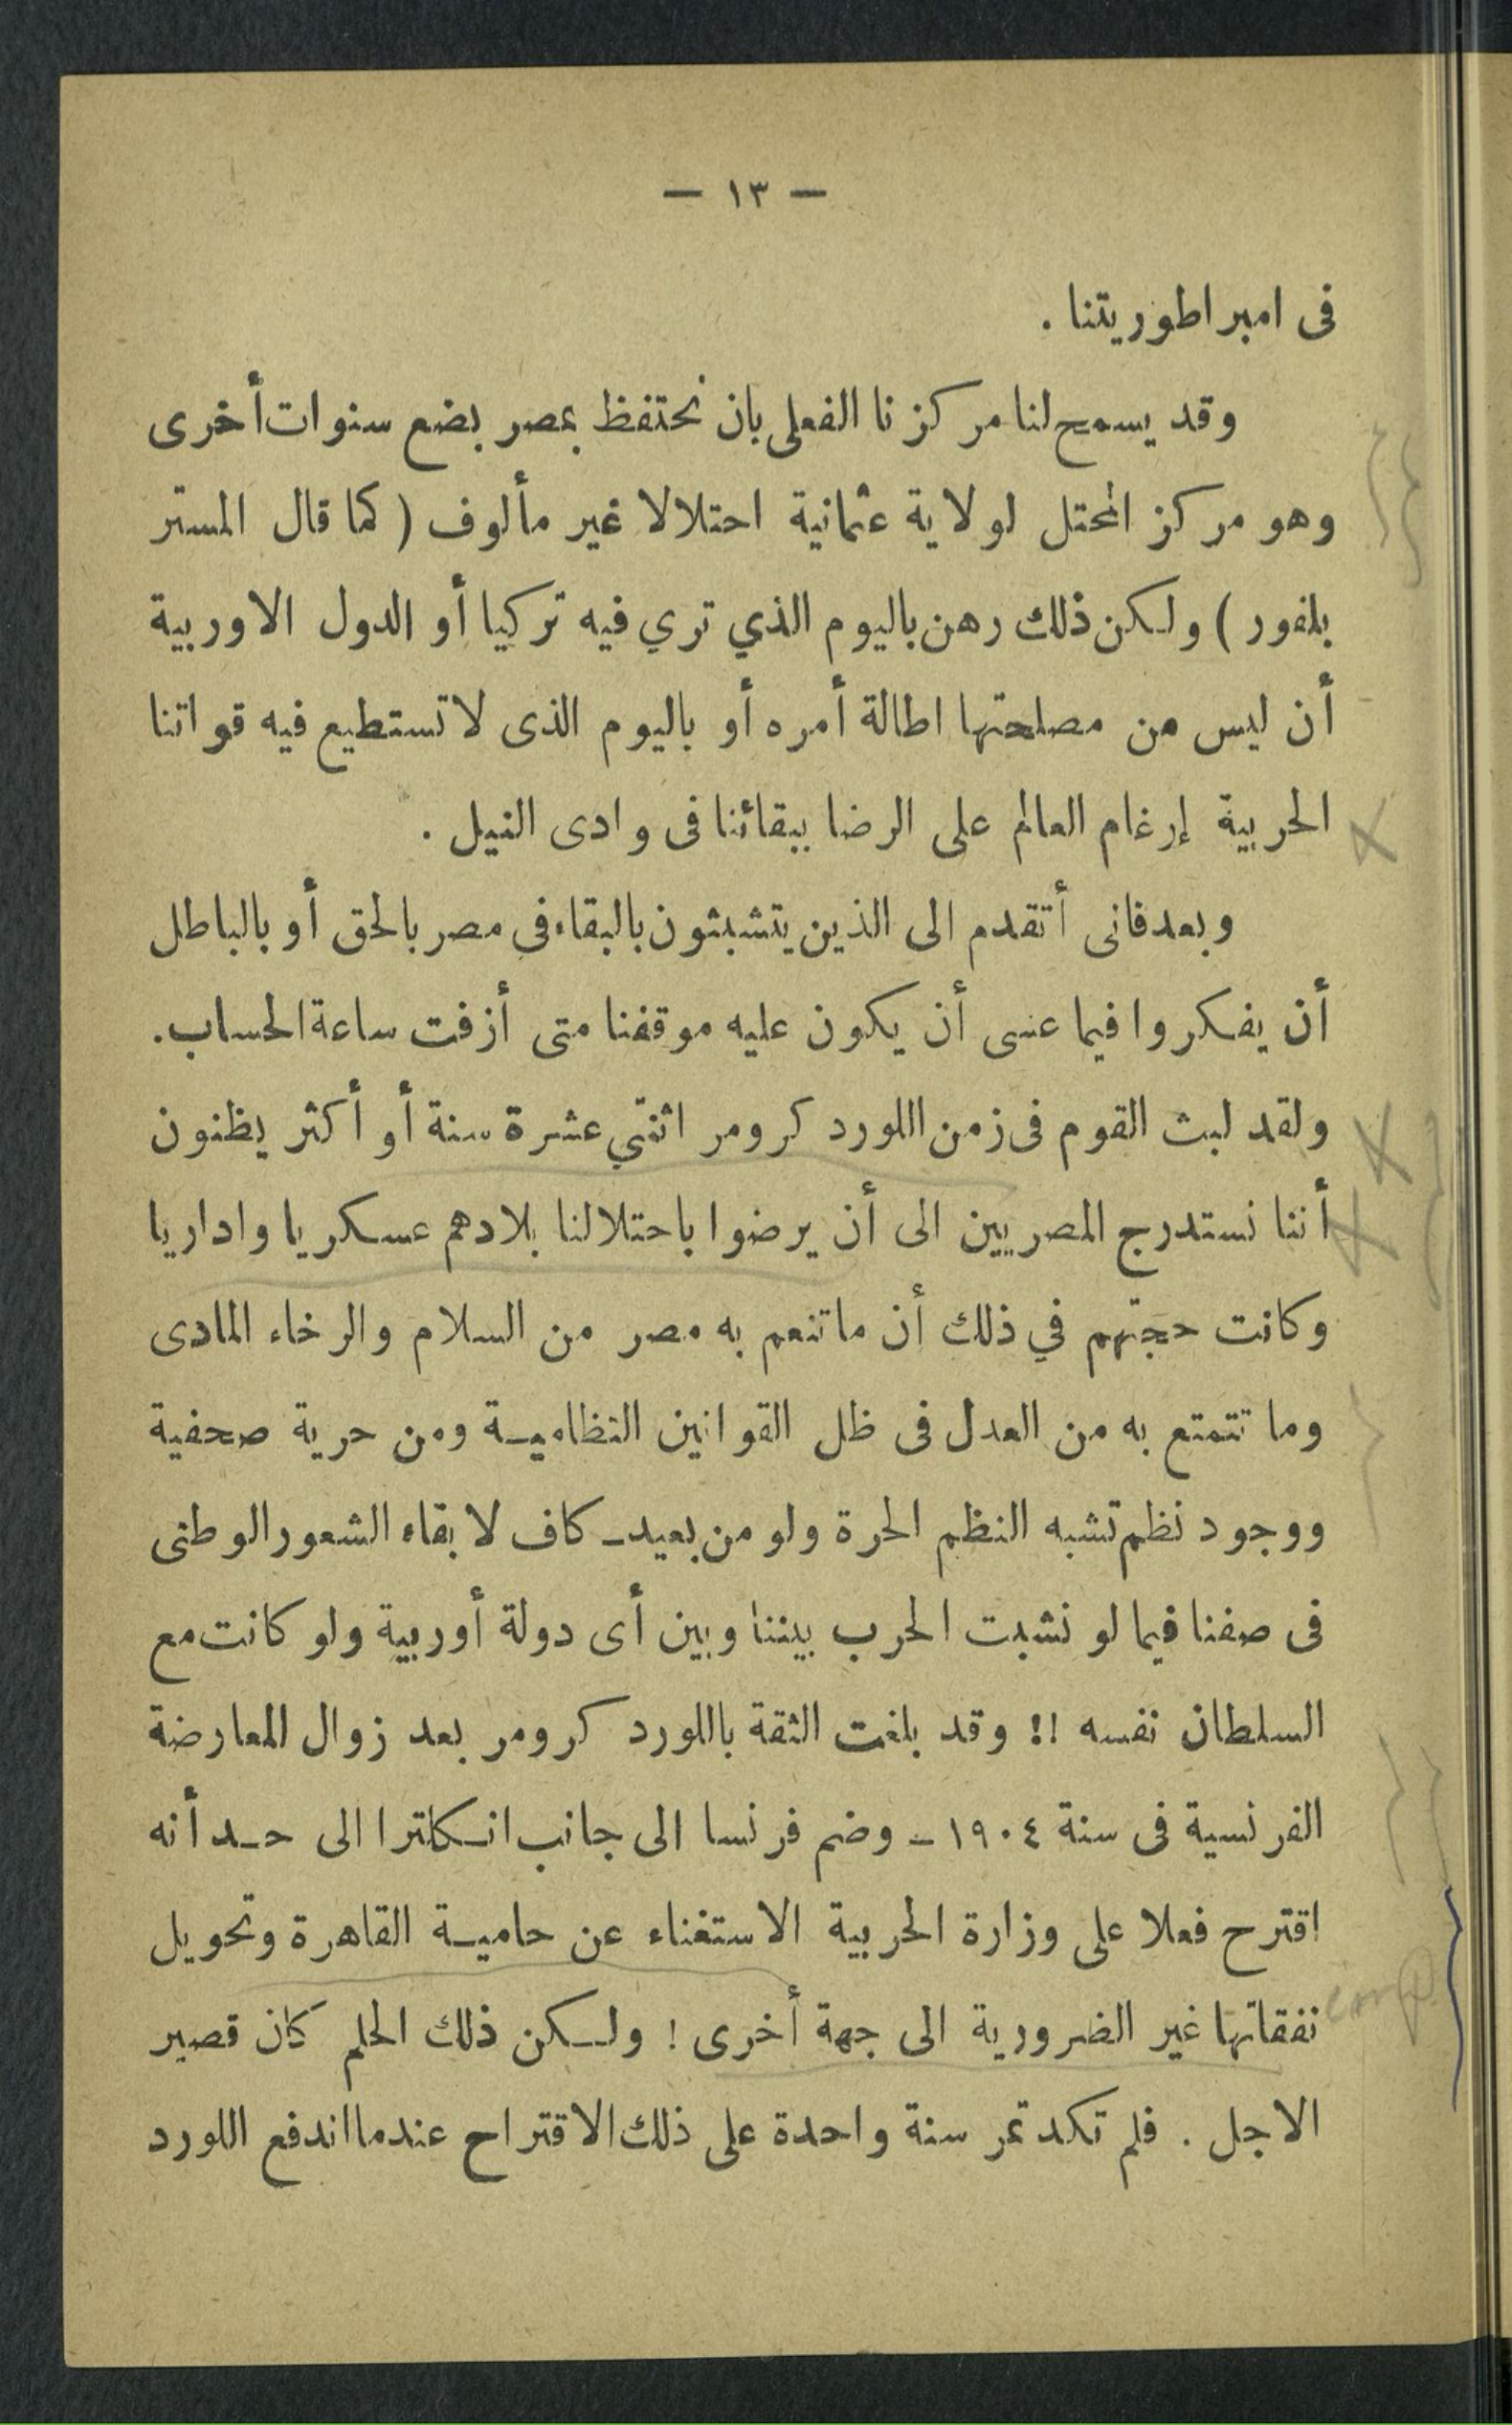 — ١٣ —
فى امبراطوريتنا .
وقد يسمح لنا مركزنا الفعلى بان نحتفظ بمصر بضع سنوات أخرى
وهو مركز المحتل لولاية عثمانية احتلالا غير مألوف ( كما قال المستر
بلفور ) ولكن ذلك رهن باليوم الذي تري فيه تركيا أو الدول الاوربية
أن ليس من مصلحتها اطالة أمره أو باليوم الذى لا تستطيع فيه قواتنا
الحربية إرغام العالم على الرضا ببقائنا فى وادى النيل .
وبعد فانى أتقدم الى الذين يتشبثون بالبقاء فى مصر بالحق أو بالباطل
أن يفكروا فيما عسى أن يكون عليه موقفنا متى أزفت ساعة الحساب.
ولقد لبث القوم فى زمن اللورد كرومر اثنتي عشرة سنة أو أكثر يظنون
أننا نستدرج المصريين الى أن يرضوا باحتلالنا بلادهم عسكريا واداريا
وكانت حجتهم في ذلك أن ما تنعم به مصر من السلام والرخاء المادى
وما تتمتع به من العدل فى ظل القوانين النظامية ومن حرية صحفية
ووجود نظم تشبه النظم الحرة ولو من بعيد ـ كاف لابقاء الشعور الوطنى
فى صفنا فيما لو نشبت الحرب بيننا وبين أى دولة أوربية ولو كانت مع
السلطان نفسه !! وقد بلغت الثقة باللورد كرومر بعد زوال المعارضة
الفرنسية فى سنة ١٩٠٤ ـ وضم فرنسا الى جانب انكلترا الى حد أنه
اقترح فعلا على وزارة الحربية الاستغناء عن حامية القاهرة وتحويل
نفقاتها غير الضرورية الى جهة أخرى ! ولكن ذلك الحلم كان قصير
الاجل . فلم تكد تمر سنة واحدة على ذلك الاقتراح عندما اندفع اللورد